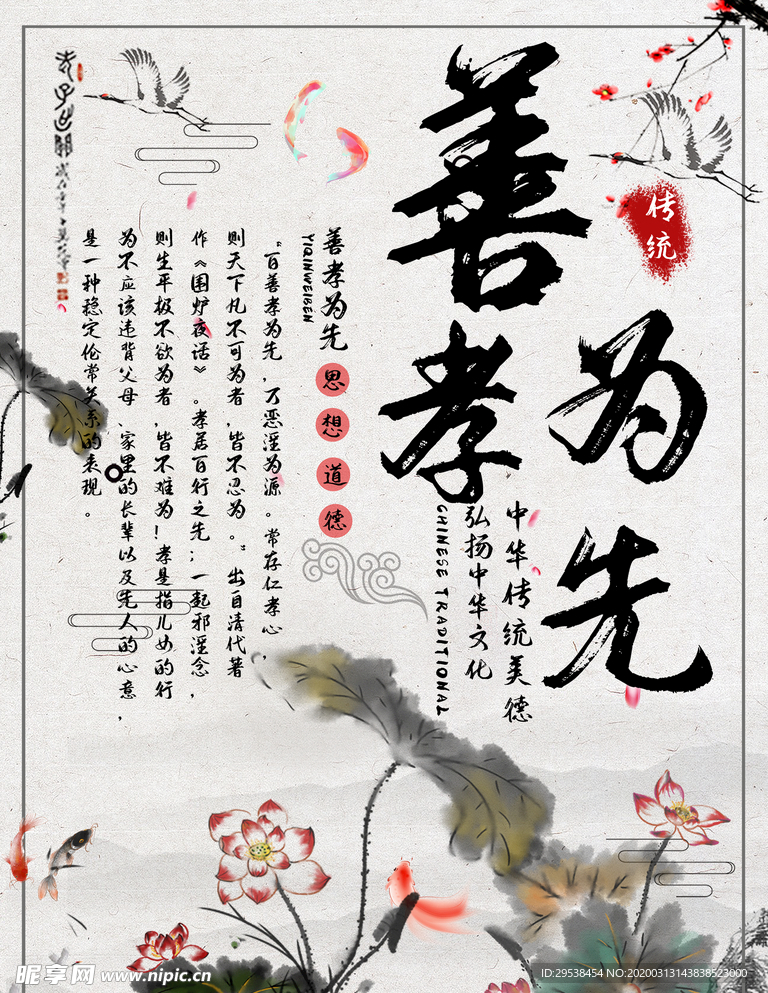 善孝
为先
传统
中华传统美德
弘扬中华文化
CHINESE TRADITIONAL
善孝为先
YIQINWEIBEN
思想道德
“百善孝为先，万恶淫为源。常存仁孝心，
则天下凡不可为者，皆不忍为。”出自清代著
作《围炉夜话》。孝居百行之先；一起邪淫念，
则生平极不欲为者，皆不难为！孝是指儿女的行
为不应该违背父母、家里的长辈以及先人的心意，
是一种稳定伦常关系的表现。
昵享网 www.nipic.cn
ID:29538454 NO:20200313143838523000